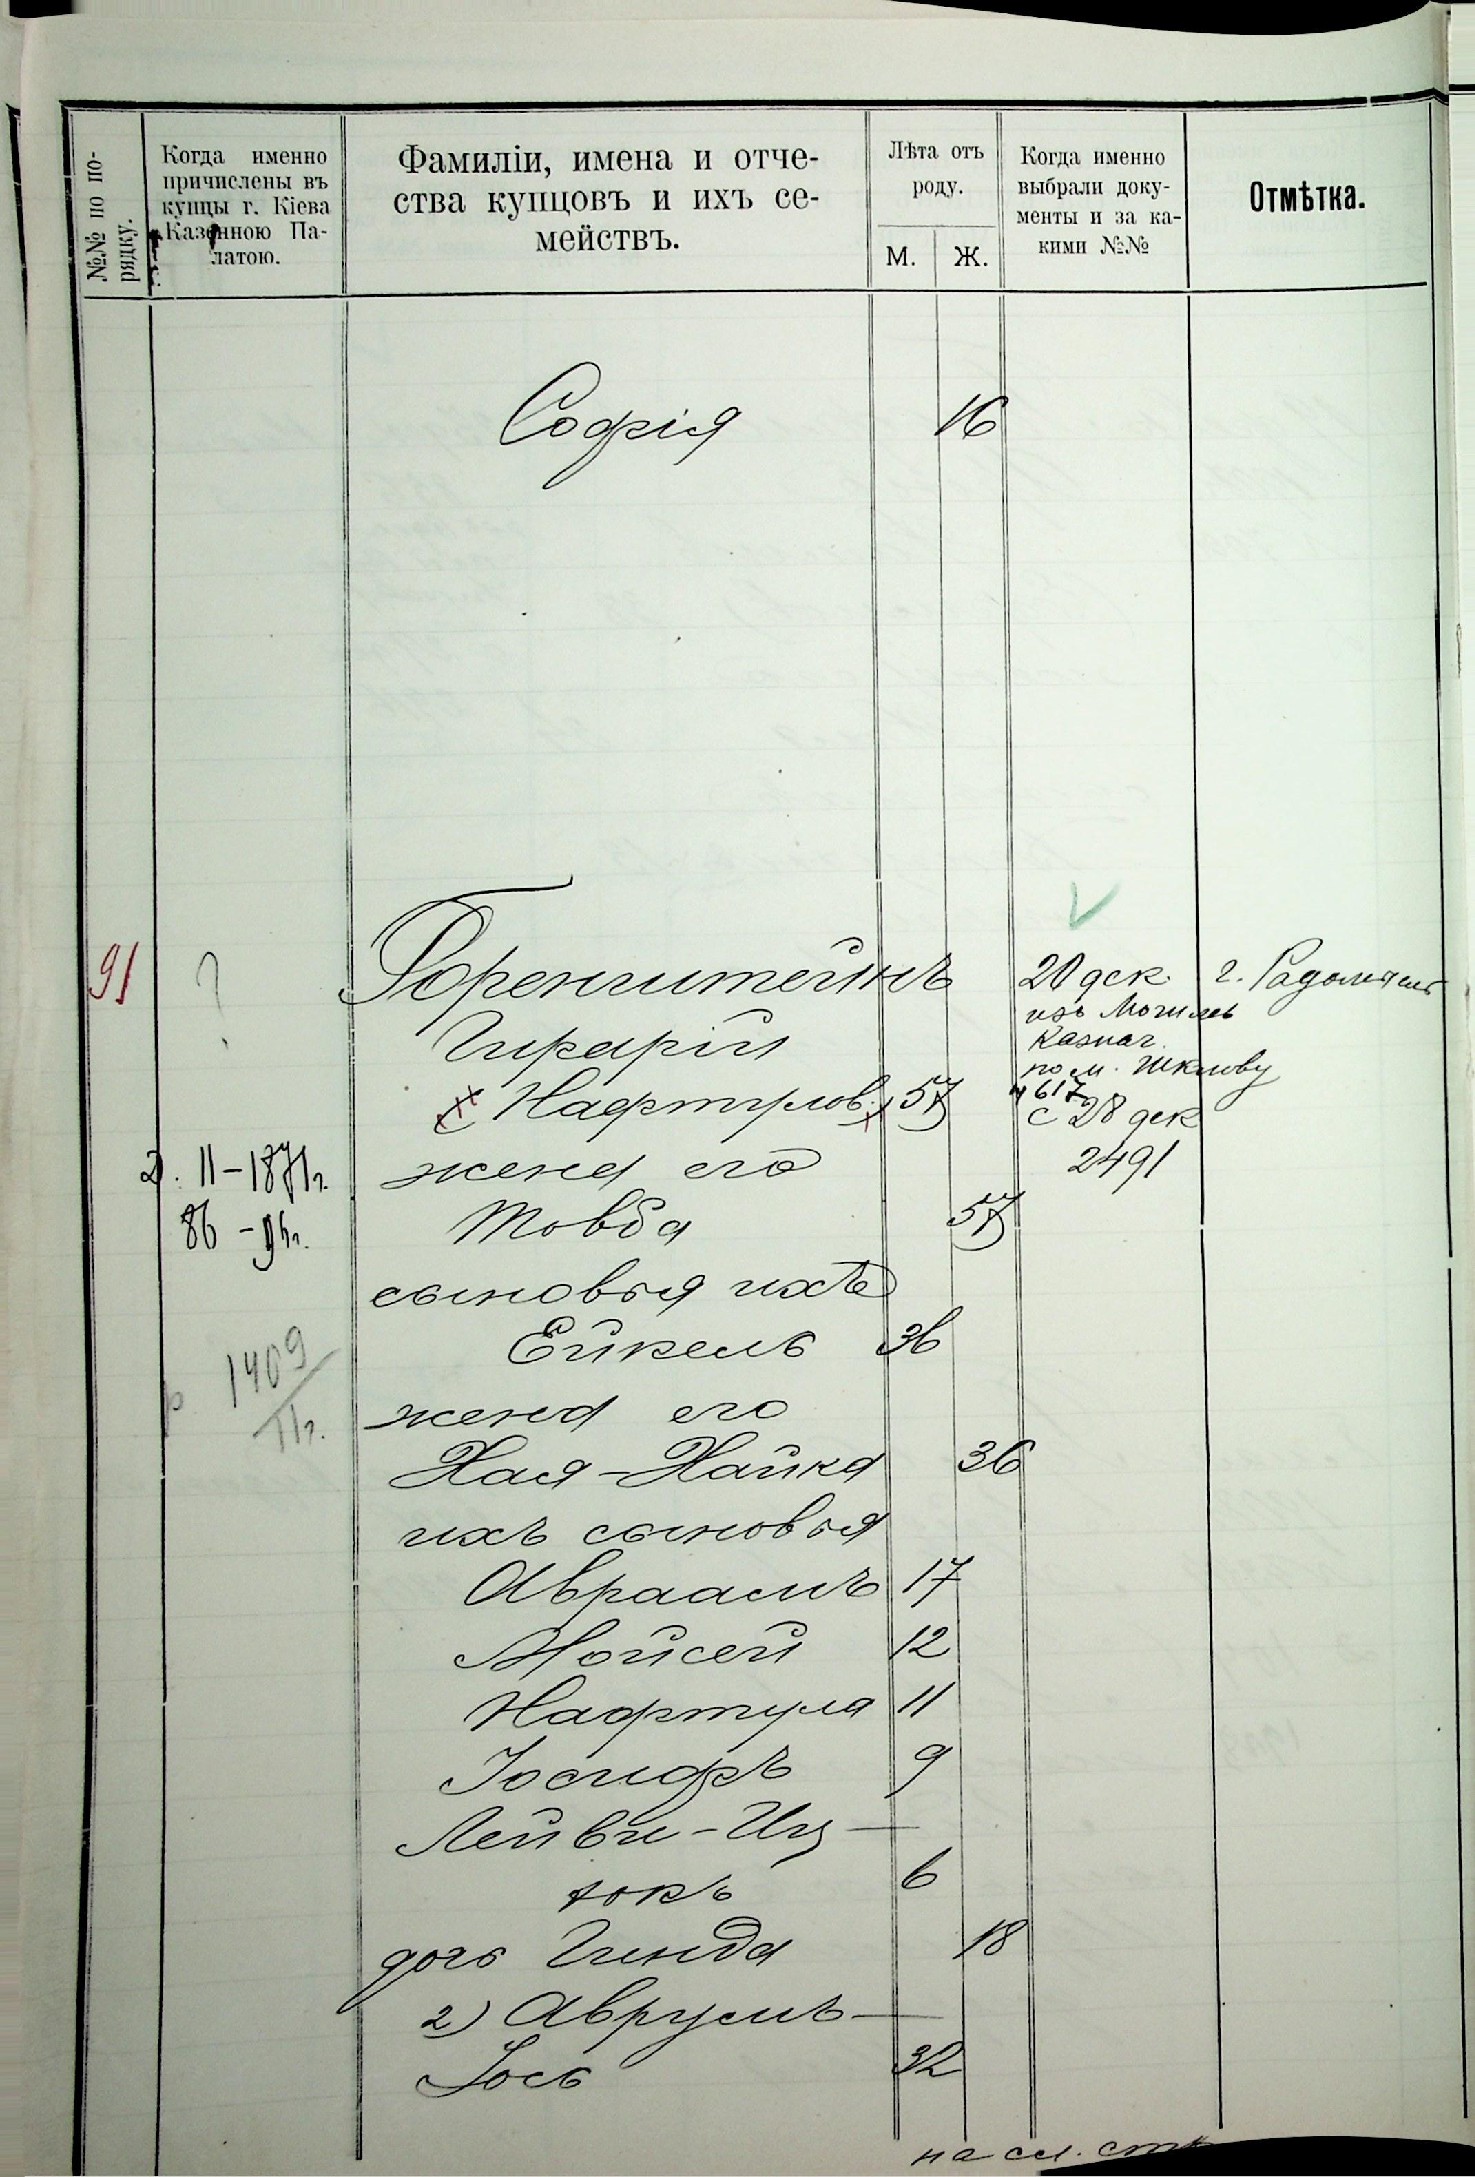 №№ по по-
рядку.
Когда именно
причислены въ
купцы г. Кіева
Казенною Па-
латою.
Фамиліи, имена и отче-
ства купцовъ и ихъ се-
мействъ.
Лѣта отъ
роду.
М. Ж.
Когда именно
выбрали доку-
менты и за ка-
кими №№
Отмѣтка.
Софія 16
91 ? Горенштейнъ 20 дек. г. Радомысль
изъ Могилев
Казнач.
по м. Шклову
Нафтулов. 57 4617
с 28 дек
2491
Д. 11-1871г. жена его
86 - Товба 57
сыновья ихъ
Ейкель 36
1409
11г.
жена его
Хая-Хайка 36
ихъ сыновья
Авраамъ 17
Мойсей 12
Нафтула 11
Іосифъ 9
Лейви-Иц-
вокъ 6
дочь Гинда 18
2) Аврумъ-
Іось 32
на сл. стр